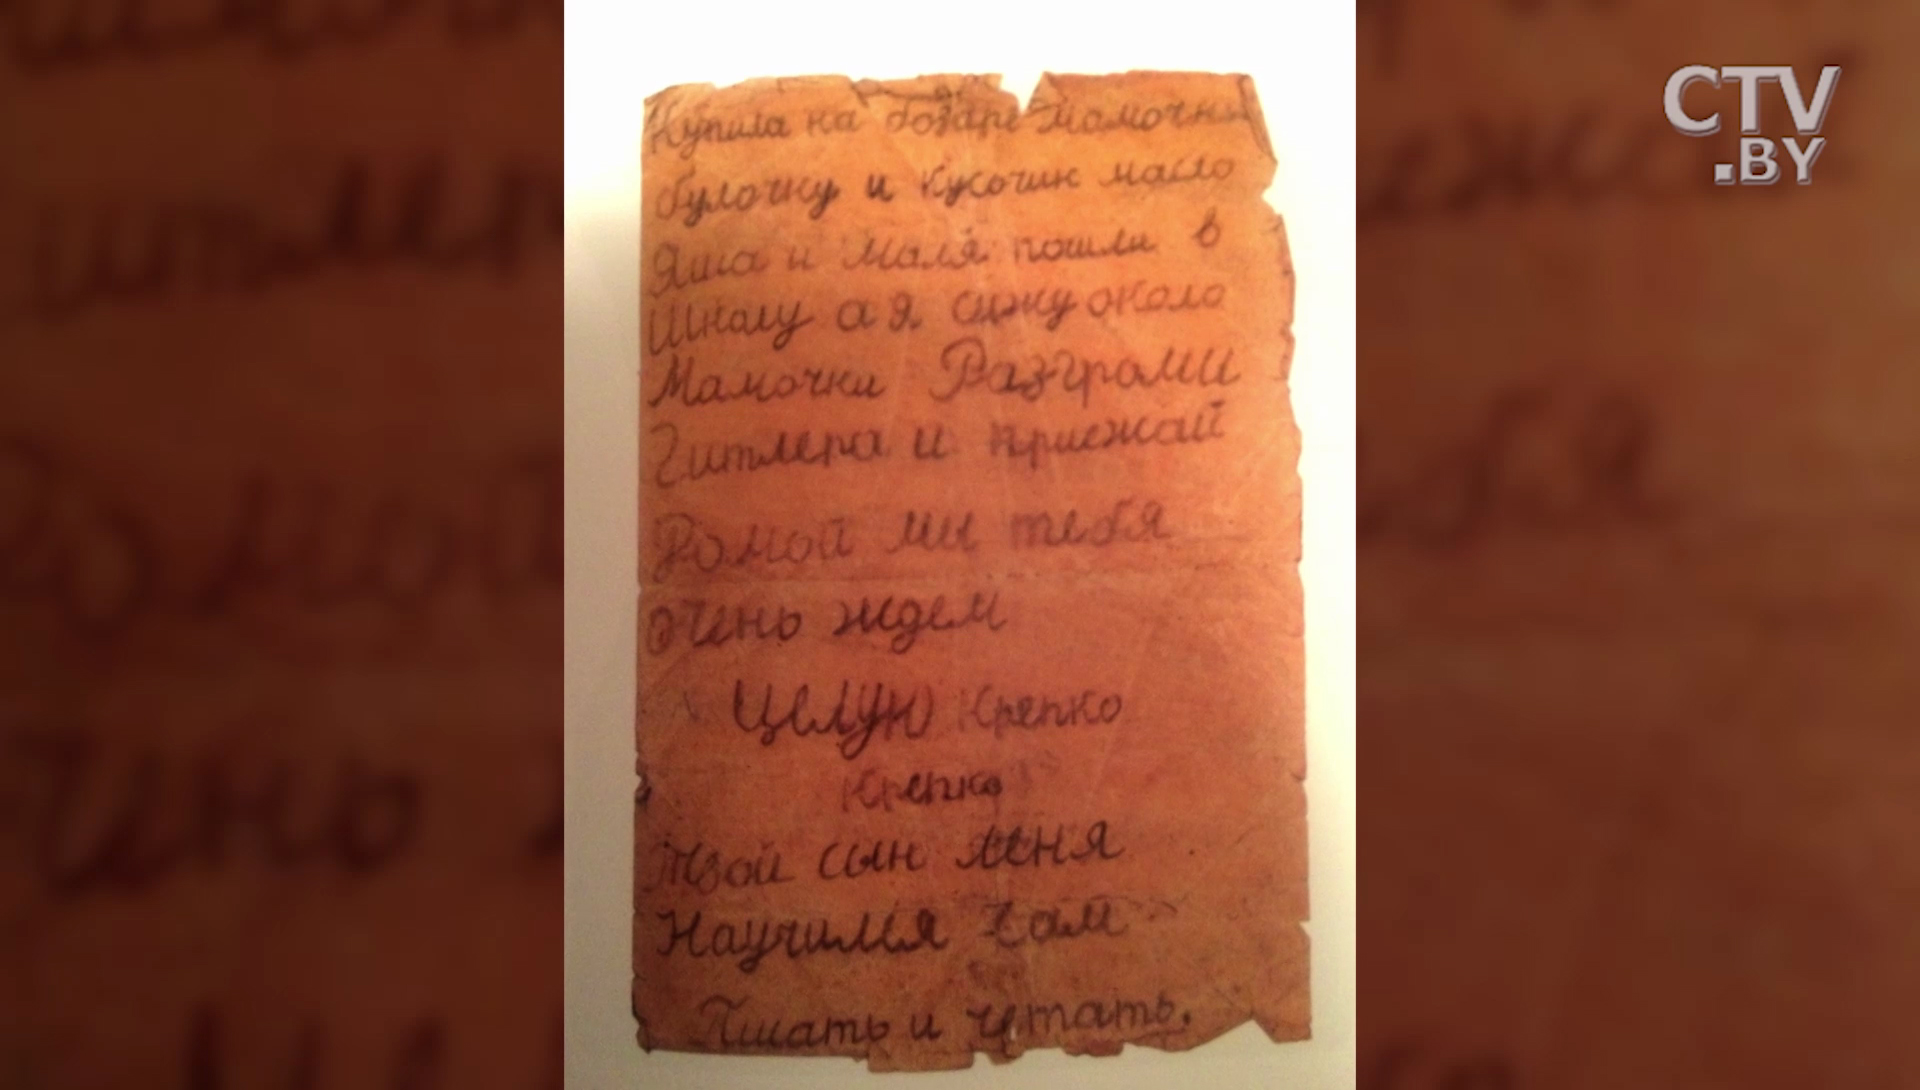 CTV
.BY
Купила на бозаре мамочки
булочку и кусочик масло
Яша и Маля пошли в
Школу а я сижу около
Мамочки Разгроми
Гитлера и приежай
Домой мы тебя
очень ждем
целую Крепко
Крепко
Твой сын Меня
Научился сам
Писать и четать.